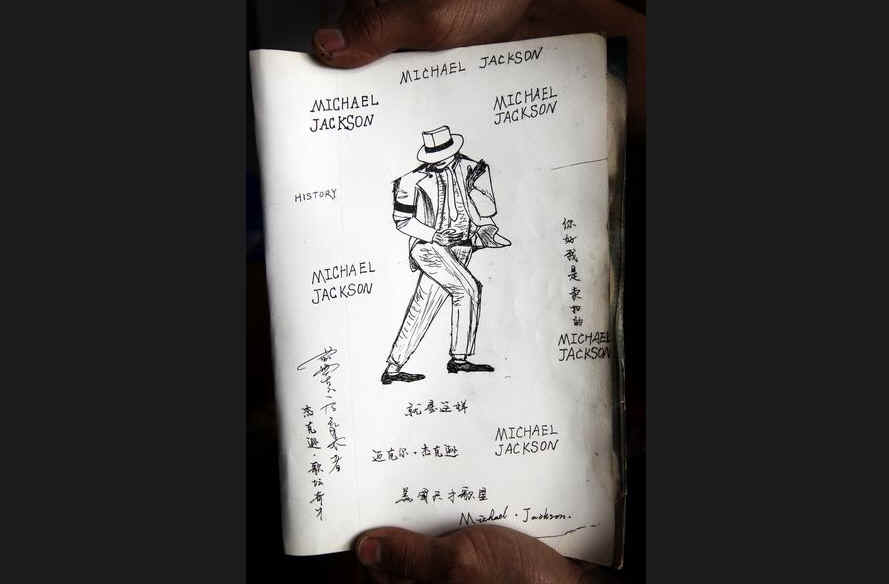 MICHAEL JACKSON
MICHAEL
JACKSON
MICHAEL
JACKSON
HISTORY
你好我是
的
MICHAEL
JACKSON
MICHAEL
JACKSON
就是这样
杰克逊·歌坛奇才
迈克尔·杰克逊
MICHAEL
JACKSON
美国天才歌星
Michael · Jackson.